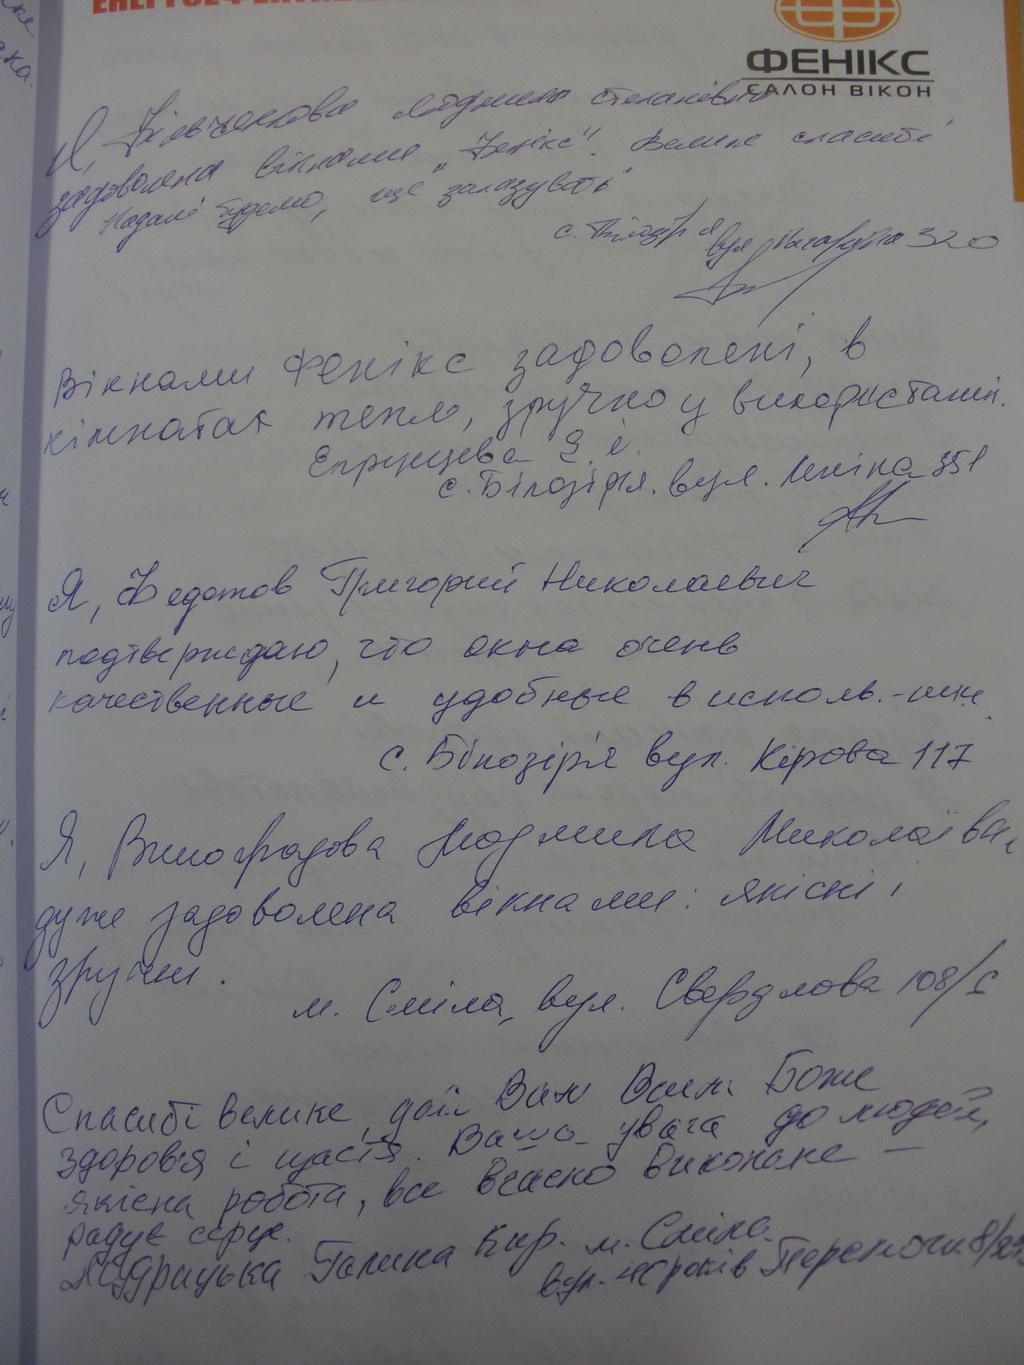 ФЕНІКС
САЛОН ВІКОН
Я, Людмила Степанівна
задоволена вікнами „Фенікс". Велике спасибі
Надалі будемо, ще заказувать
с. Білозір'я вул 320
Вікнами Фенікс задоволені, в
кімнатах тепло, зручно у використанні.
с. Білозір'я. вул. Леніна 351
Я, Федотов Григорий Николаевич
подтверждаю, что окна очень
качественные и удобные в исполь.-нии.
с. Білозір'я вул. Кірова 117
Я, Виноградова Людмила Миколаївна,
дуже задоволена вікнами: якісні і
зручні.
м. Сміла, вул. Свердлова 108/
Спасибі велике, дай Вам Всим Боже
здоров'я і щастя. Ваша увага до людей,
якісна робота, все вчасно виконане –
радує серце.
Мудрицька Галина Кир. м. Сміла
вул. 40 років Перемоги 8/